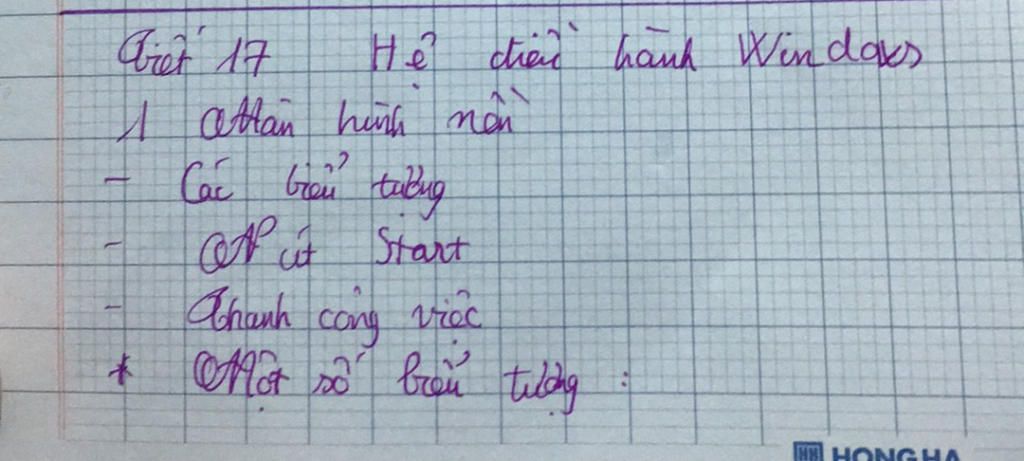 Tiết 17 Hệ điều hành Windows
1 Màn hình nền
- Các biểu tượng
- Nút Start
- Thanh công việc
* Một số biểu tượng :
HH HONG HA